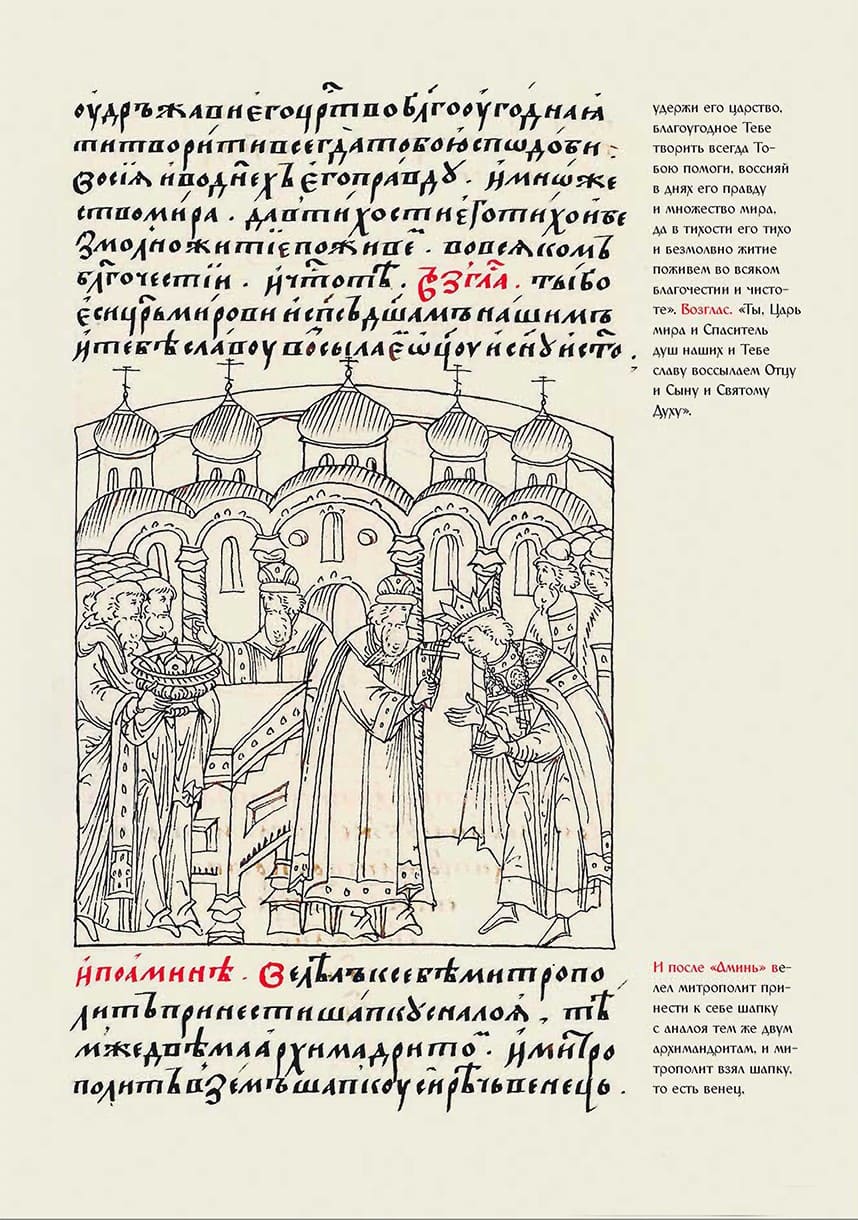 ѹдръжави его цр҃тво бл҃гоѹгоднаѧ
ти творити всегда тобою спѡдоби
восїѧ и во дн҃ехъ его правдѹ . и мнѡже
ство мира . да в тихости е҃г тихо и бе
змолно житїе поживе . во всѧком
бл҃гочестїи . и чⷭ҇тотѣ . възгла . ты бо
еси цр҃ь мирови и сп҃съ дш҃амъ нашимъ
и тебѣ славоу восылае ѡц҃оу и сн҃оу и ст҃о .
удержи его царство,
благоугодное Тебе
творить всегда То-
бою помоги, воссияй
в днях его правду
и множество мира,
да в тихости его тихо
и безмолвно житие
поживем во всяком
благочестии и чисто-
те». Возглас. «Ты, Царь
мира и Спаситель
душ наших и Тебе
славу воссылаем Отцу
и Сыну и Святому
Духу».
и по аминѣ . Велѣлъ к себѣ митропо
литъ принести шапкѹ с налоѧ . тѣ
мже двѣма архимадрито . и митро
политъ вземъ шапкоу си рѣчь венець .
И после «Аминь» ве-
лел митрополит при-
нести к себе шапку
с аналоя тем же двум
архимандритам, и ми-
трополит взял шапку,
то есть венец,